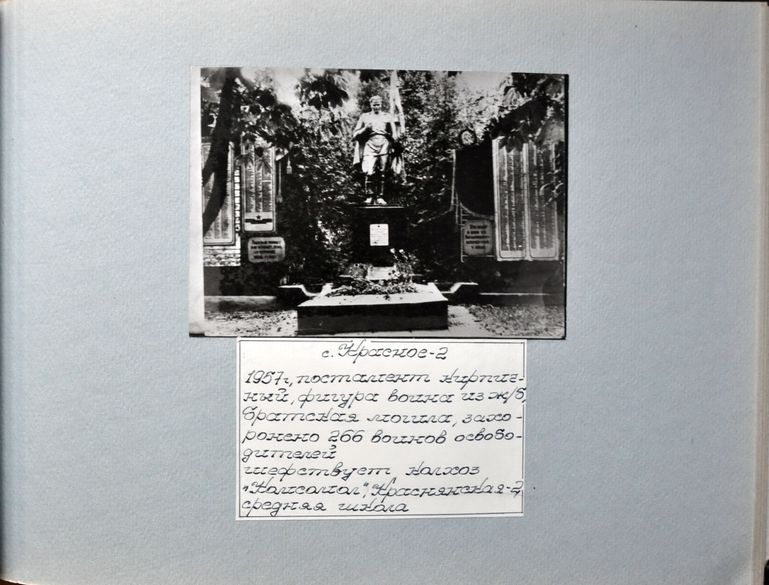 с. Красное-2
1957г, постамент кирпич-
ный, фигура воина из ж/б,
братская могила, захо-
ронено 266 воинов освобо-
дителей
шефствует колхоз
"Комсомол", Краснянская-2
средняя школа